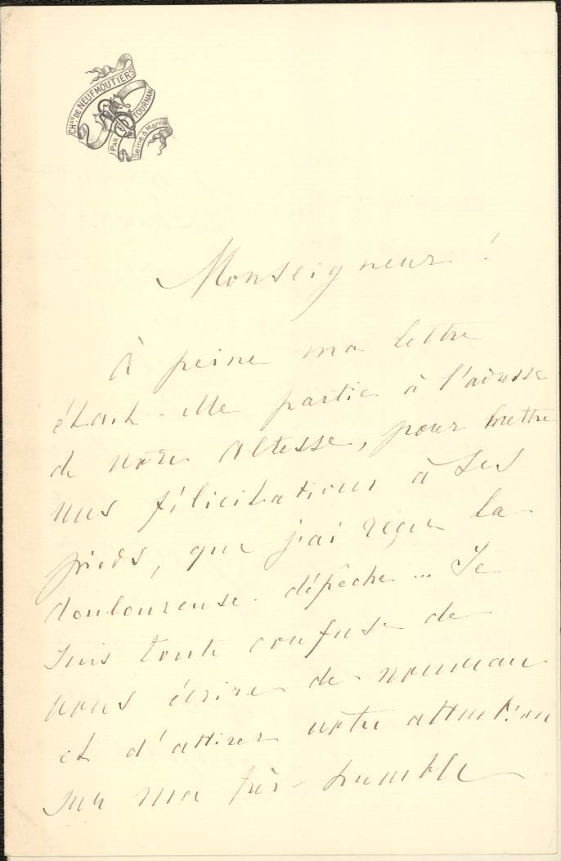 CHAU DE NEUFMOUTIERS
PAR TOURNAN
Seine & Marne
Monseigneur !
À peine ma lettre
était-elle partie à l'adresse
de votre Altesse, pour mettre
mes félicitations à Ses
pieds, que j'ai reçu la
douloureuse dépêche ... Je
suis toute confuse de
vous écrire de nouveau
et d'attirer votre attention
sur ma très-humble